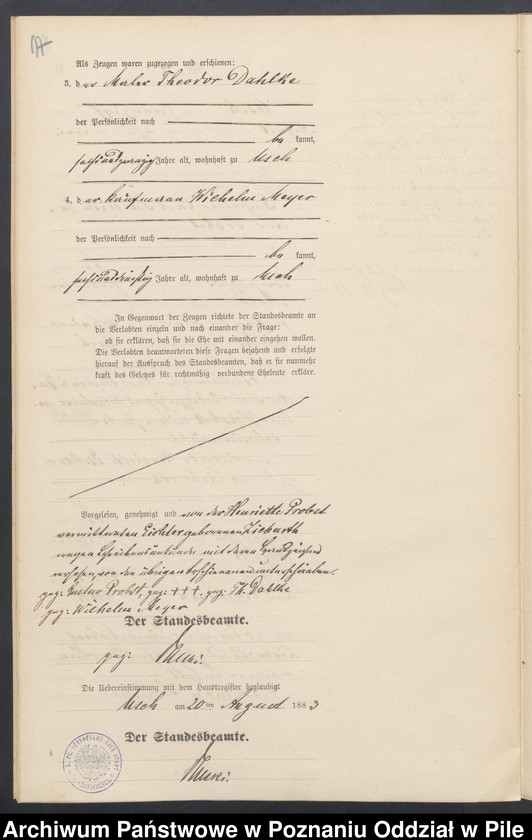 Als Zeugen waren zugezogen und erschienen:
3. der Maler Theodor Dahlke
der Persönlichkeit nach
be kannt,
sechsundzwanzig Jahre alt, wohnhaft zu Usch
4. der Kaufmann Wilhelm Meyer
der Persönlichkeit nach
be kannt,
sechsunddreißig Jahre alt, wohnhaft zu Usch
In Gegenwart der Zeugen richtete der Standesbeamte an
die Verlobten einzeln und nach einander die Frage:
ob sie erklären, daß sie die Ehe mit einander eingehen wollen.
Die Verlobten beantworteten diese Fragen bejahend und erfolgte
hierauf der Ausspruch des Standesbeamten, daß er sie nunmehr
kraft des Gesetzes für rechtmäßig verbundene Eheleute erkläre.
Vorgelesen, genehmigt und von der Henriette Probst
verwittweten geborenen
wegen Schreibensunkunde mit deren Handzeichen
versehen, von den übrigen Erschienenen unterschrieben.
gez: Gustav Probst, gez: +++, gez: Th. Dahlke
gez: Wilhelm Meyer
Der Standesbeamte.
gez:
Die Uebereinstimmung mit dem Hauptregister beglaubigt
Usch am 20ten August 1883
Der Standesbeamte.
Archiwum Państwowe w Poznaniu Oddział w Pile